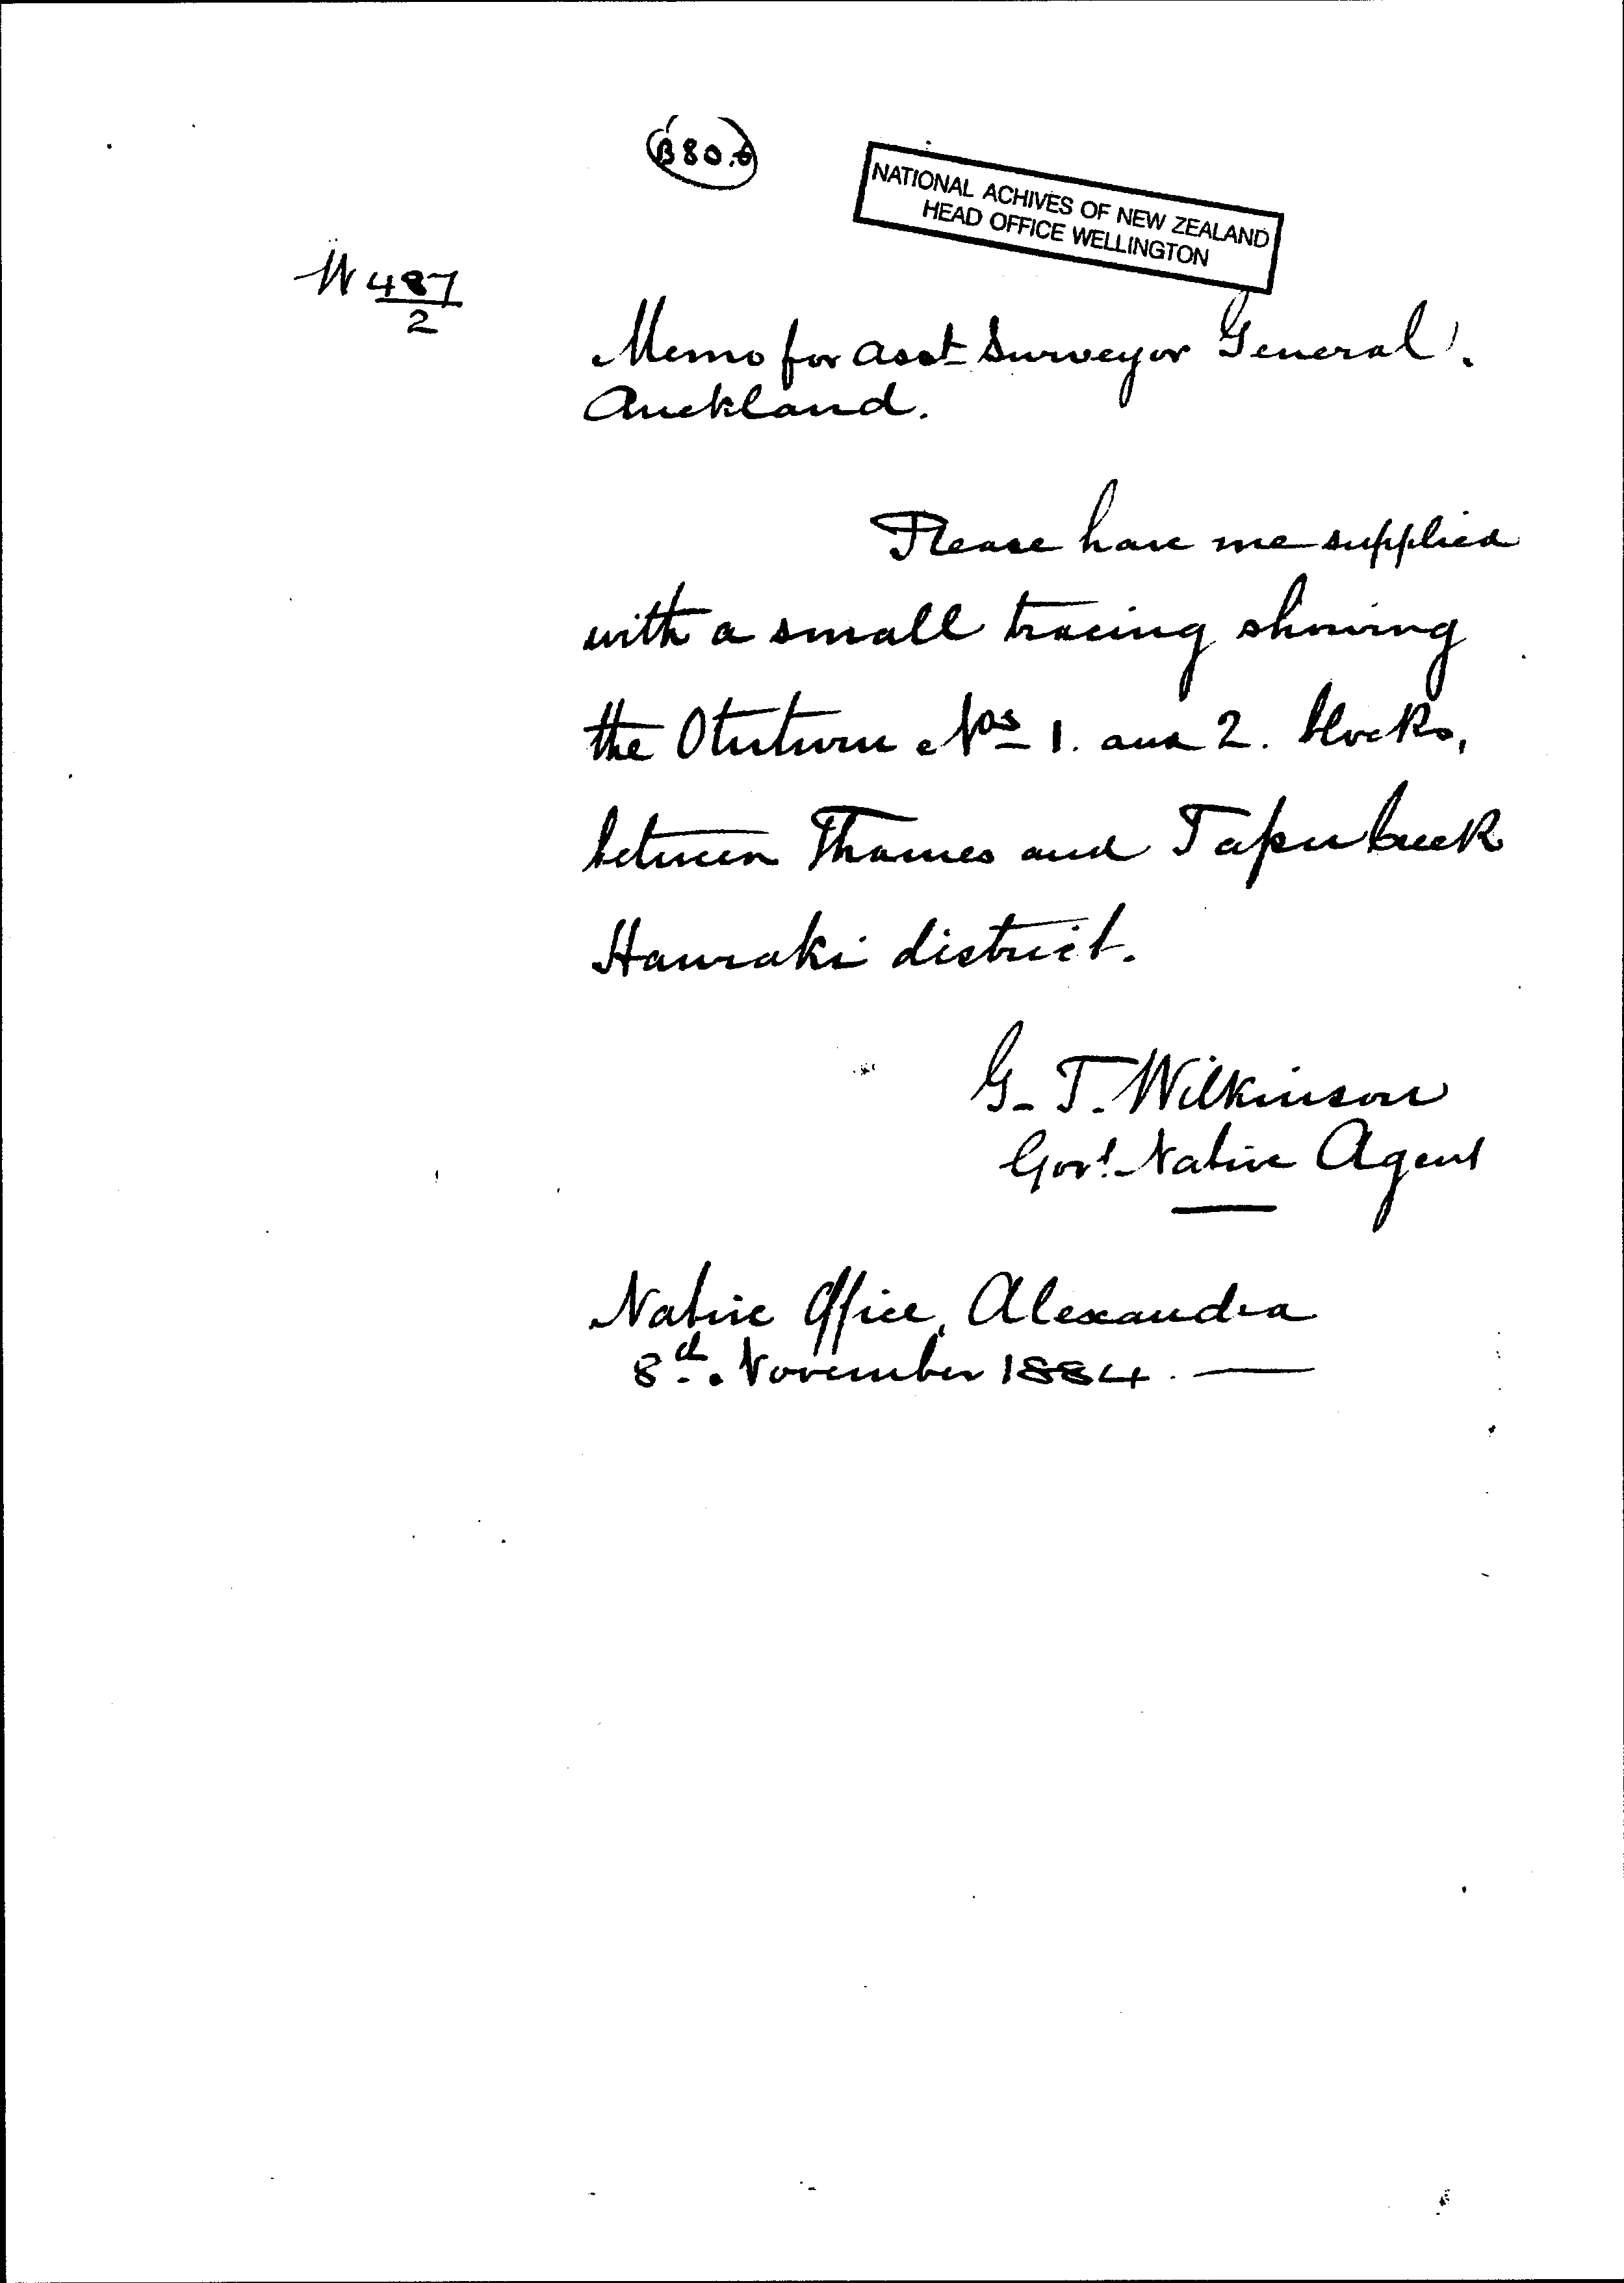 B80.6
NATIONAL ACHIVES OF NEW ZEALAND
HEAD OFFICE WELLINGTON
W 487/2
Memo for Asst Surveyor General.
Auckland.
Please have me supplied
with a small tracing showing
the Otuturu Nos 1. and 2. blocks,
between Thames and Tapu Creek
Hauraki district.
G. T. Wilkinson
Govt. Native Agent
Native Office, Alexandra
8th. November 1884.